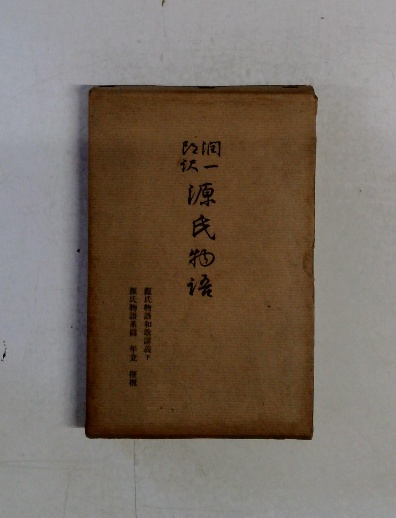 潤一
郎訳
源氏物語
源氏物語和歌講義 下
源氏物語系図 年立 梗概